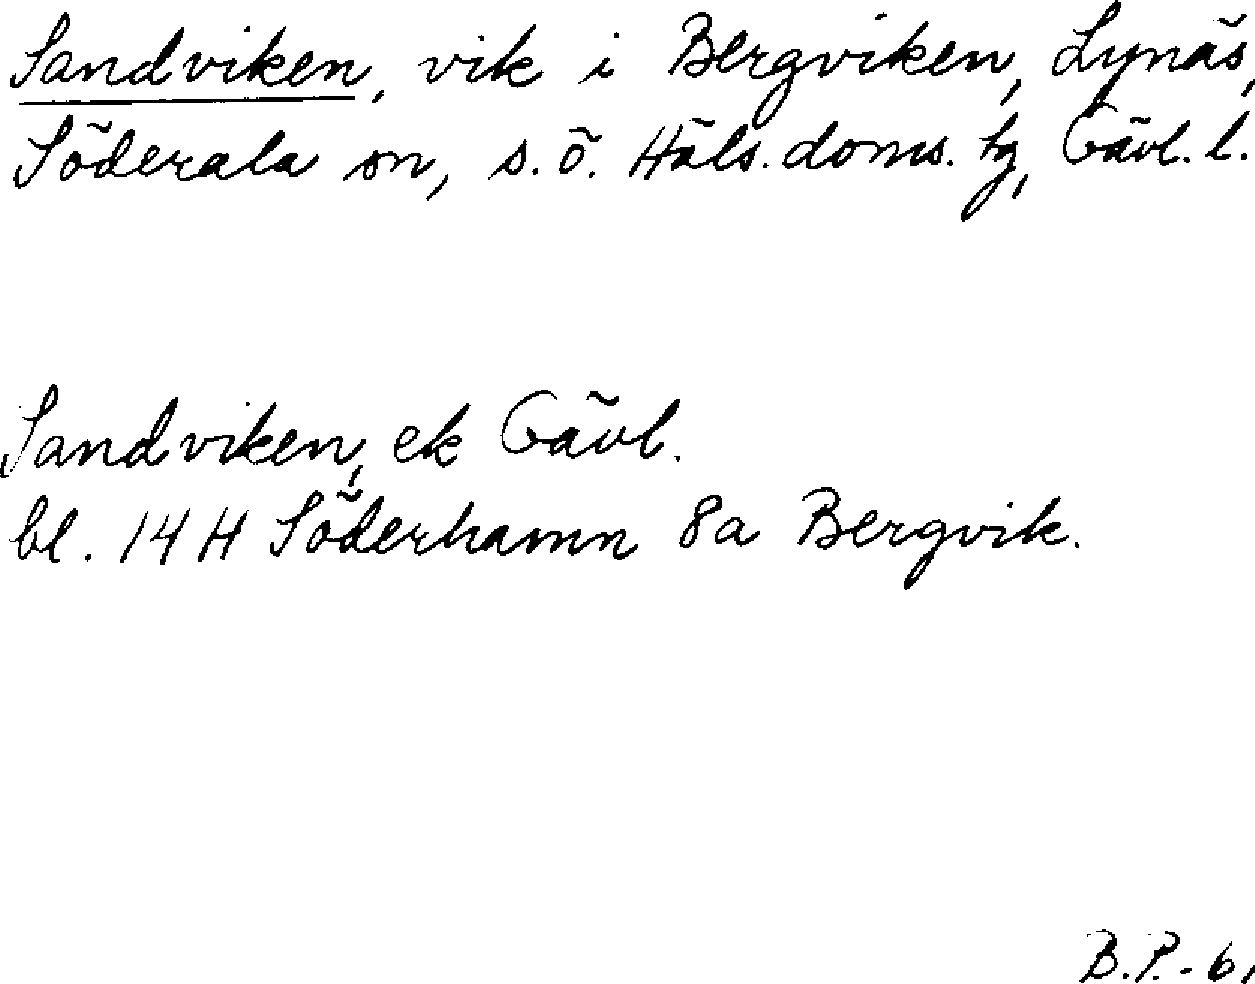 Sandviken, vik i Bergviken, Lynäs,
Söderala sn, s.ö. Häls. doms. tg, Gävl. l.
Sandviken, ek Gävl.
bl. 14 H Söderhamn 8a Bergvik.
B.P.-61